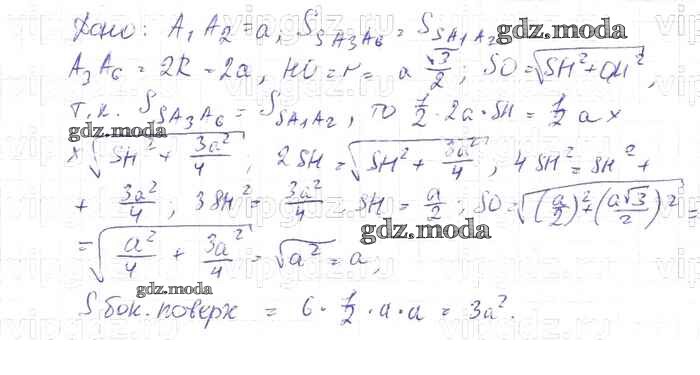 Дано: A₁A₂ = a, S_SA₃A₆ = S_SA₁A₂
gdz.moda
A₃A₆ = 2R = 2a, HO = r = a √3/2; SO = √(SH² + OH²),
т.к. S_SA₃A₆ = S_SA₁A₂, то 1/2 · 2a · SH = 1/2 a ×
gdz.moda
× √(SH² + 3a²/4); 2SH = √(SH² + 3a²/4), 4SH² = SH² +
+ 3a²/4; 3SH² = 3a²/4. SH = a/2; SO = √((a/2)² + (a√3/2)²) =
gdz.moda
= √(a²/4 + 3a²/4) = √a² = a,
gdz.moda
S бок. поверх = 6 · 1/2 · a · a = 3a².